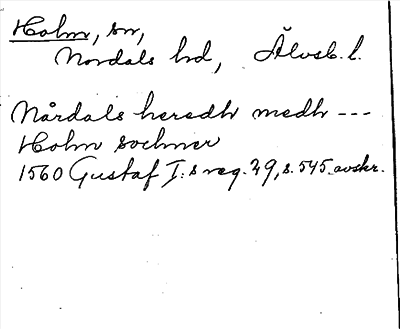 Holm, sn,
Nordals hd, Älvsb. l.
Nårdals heredh medh ---
Holm sochner
1560 Gustaf I:s reg. 29, s. 545. avskr.